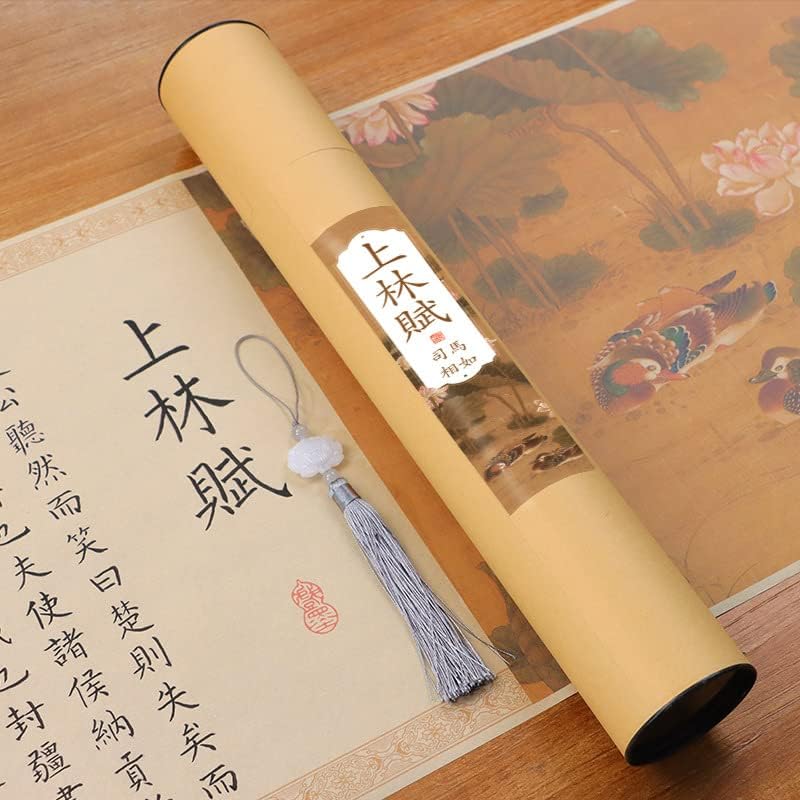 上林賦
司馬
相如
上林賦
公聽然而笑曰楚則失矣而
也夫使諸侯納貢
也封疆